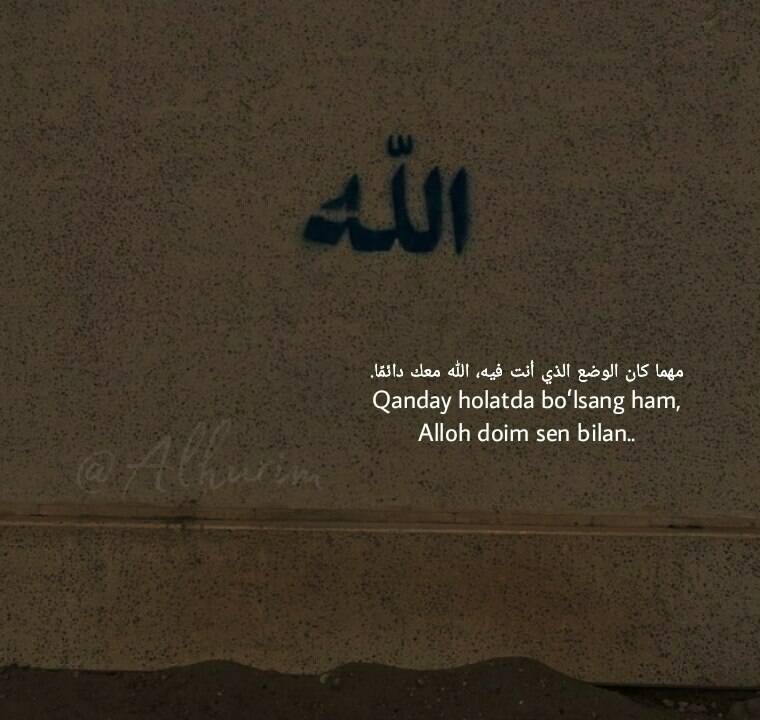 اللّٰه
مهما كان الوضع الذي أنت فيه، الله معك دائمًا.
Qanday holatda bo‘lsang ham,
Alloh doim sen bilan..
@Alhurim